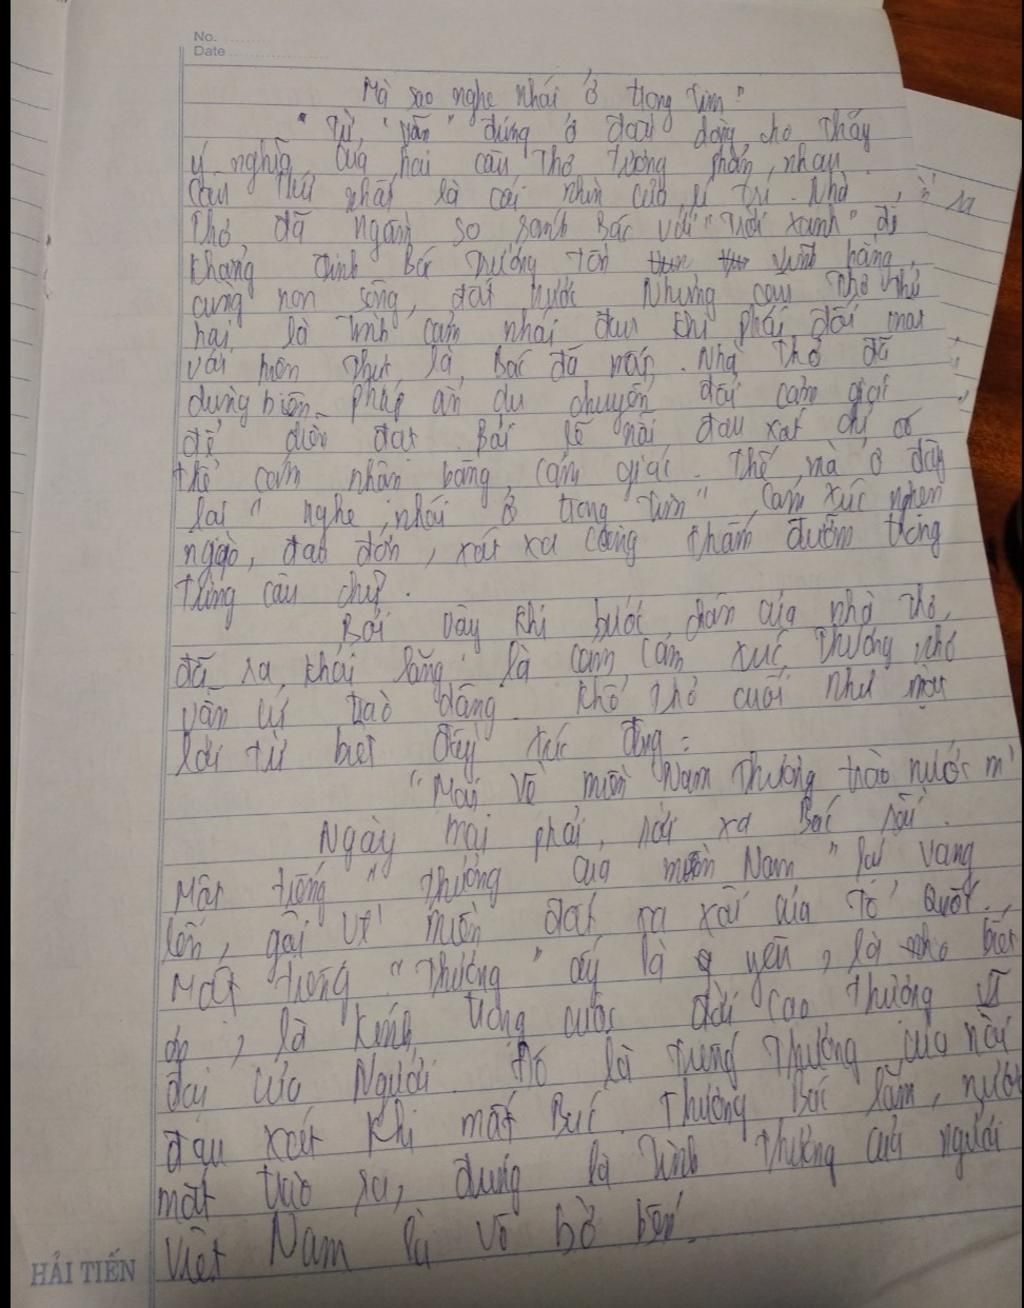 No.
Date
Mà sao nghe nhói ở trong tim"
"Từ "vẫn" đứng ở đầu dòng cho thấy
ý nghĩa của hai câu thơ tương phản nhau.
Câu thứ nhất là cái nhìn của lí trí. Nhà
thơ đã ngầm so sánh Bác với "trời xanh" để
khẳng định Bác trường tồn vĩnh hằng
cùng non sông, đất nước. Nhưng câu thơ thứ
hai là tình cảm nhói đau khi phải đối mặt
với hiện thực là Bác đã mất. Nhà thơ đã
dùng biện pháp ẩn dụ chuyển đổi cảm giác
để diễn đạt. Bởi lẽ nỗi đau xót chỉ có
thể cảm nhận bằng cảm giác. Thế mà ở đây
lại "nghe nhói ở trong tim", cảm xúc nghẹn
ngào, đau đớn, xót xa càng thấm đượm trong
từng câu chữ.
Bởi vậy khi bước chân của nhà thơ
đã ra khỏi lăng là cảm xúc thương nhớ
vẫn cứ trào dâng. Khổ thơ cuối như một
lời từ biệt đầy xúc động:
"Mai về miền Nam thương trào nước m
Ngày mai phải rời xa Bác rồi.
Một tiếng "thương của miền Nam" lại vang
lên, gợi về miền đất xa xôi của Tổ Quốc.
Một tiếng "thương" ấy là yêu, là biết
ơn, là kính trọng cuộc đời cao thượng vĩ
đại của Người. Đó là tiếng thương của nỗi
đau xót khi mất Bác. Thương Bác lắm, nước
mắt trào ra, đúng là tình thương của người
Việt Nam là vô bờ bến.
HẢI TIẾN